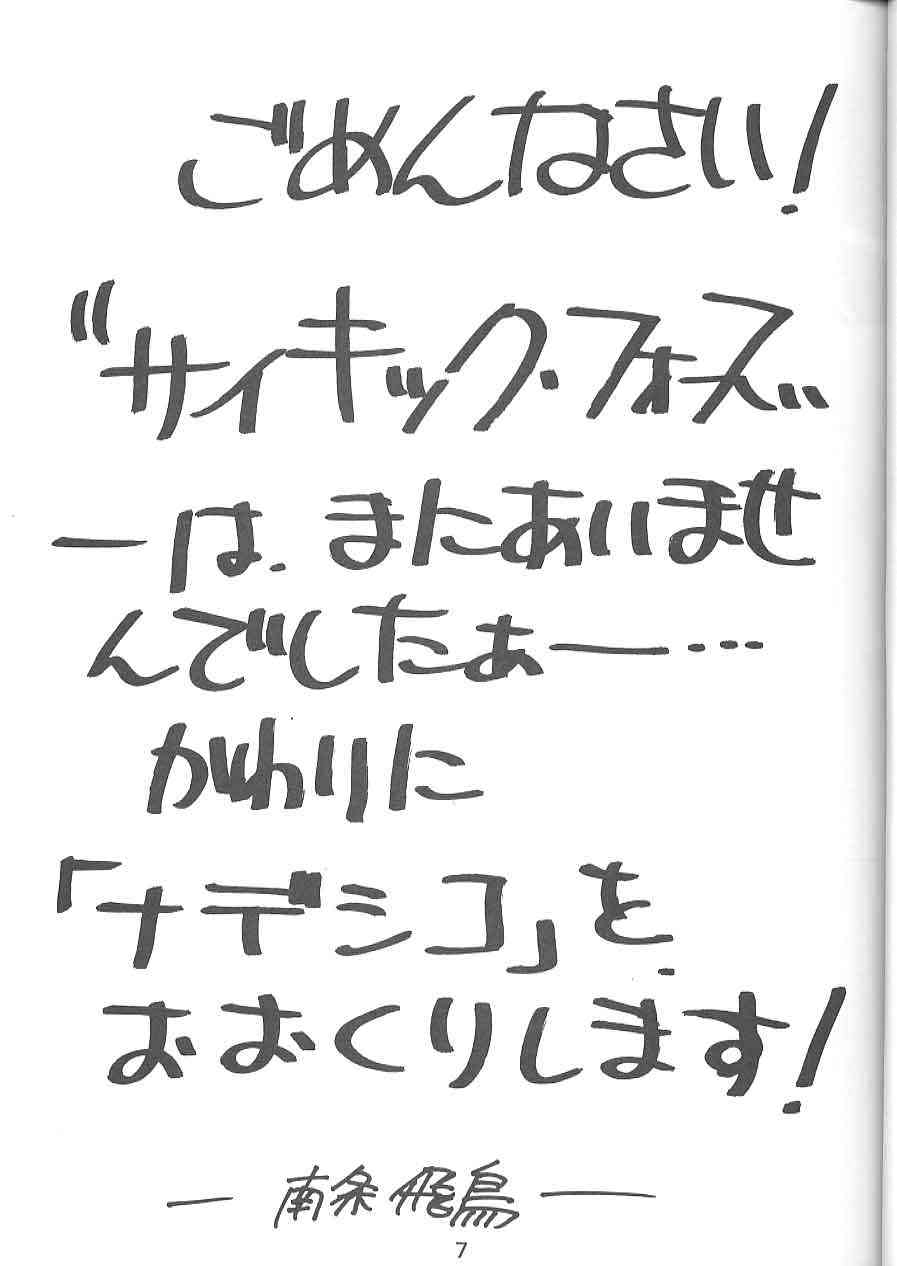 ごめんなさい!
"サイキック・フォース"
ーは、まにあいませ
んでしたぁー…
かわりに
「ナデシコ」を
おおくりします!
— 南条飛鳥 —
7